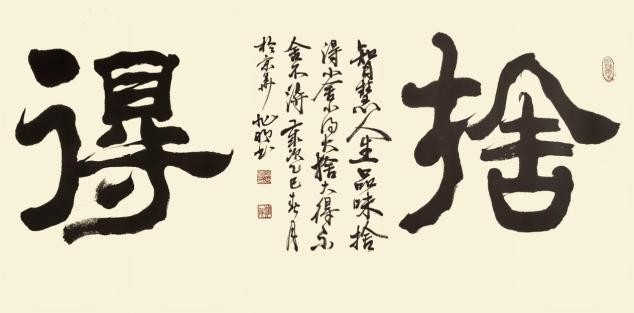 捨
智慧人生品味捨
得小舍小得大捨大得不
舍不得歲次乙巳春月
於京華
得